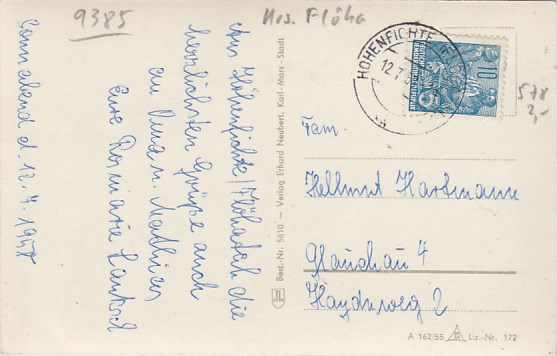 9385
Krs. Flöha
HOHENFICHTE
12.7
10
578
2,-
Sonnabend d. 12.7.1958
Aus Hohenfichte/Flöhatal die
herzlichsten Grüße auch
an Oma u. Mathias
Eure Rosmarie
Fam.
Hellmut Hartmann
Glauchau 4
Haydnweg 2
Best.-Nr. 5610 — Verlag Erhard Neubert, Karl-Marx-Stadt
A 162/55 Liz.-Nr. 172